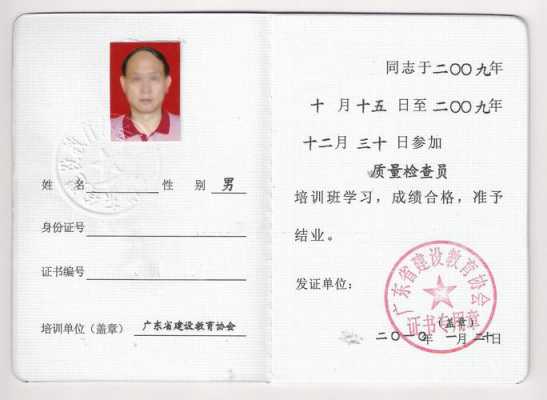 姓 名 性 别 男
身份证号
证书编号
培训单位(盖章) 广东省建设教育协会
同志于二〇〇九年
十月十五日至二〇〇九年
十二月三十日参加
质量检查员
培训班学习,成绩合格,准予
结业。
发证单位:
广东省建设教育协会
证书专用章
(盖章)
二〇一〇年一月二十日